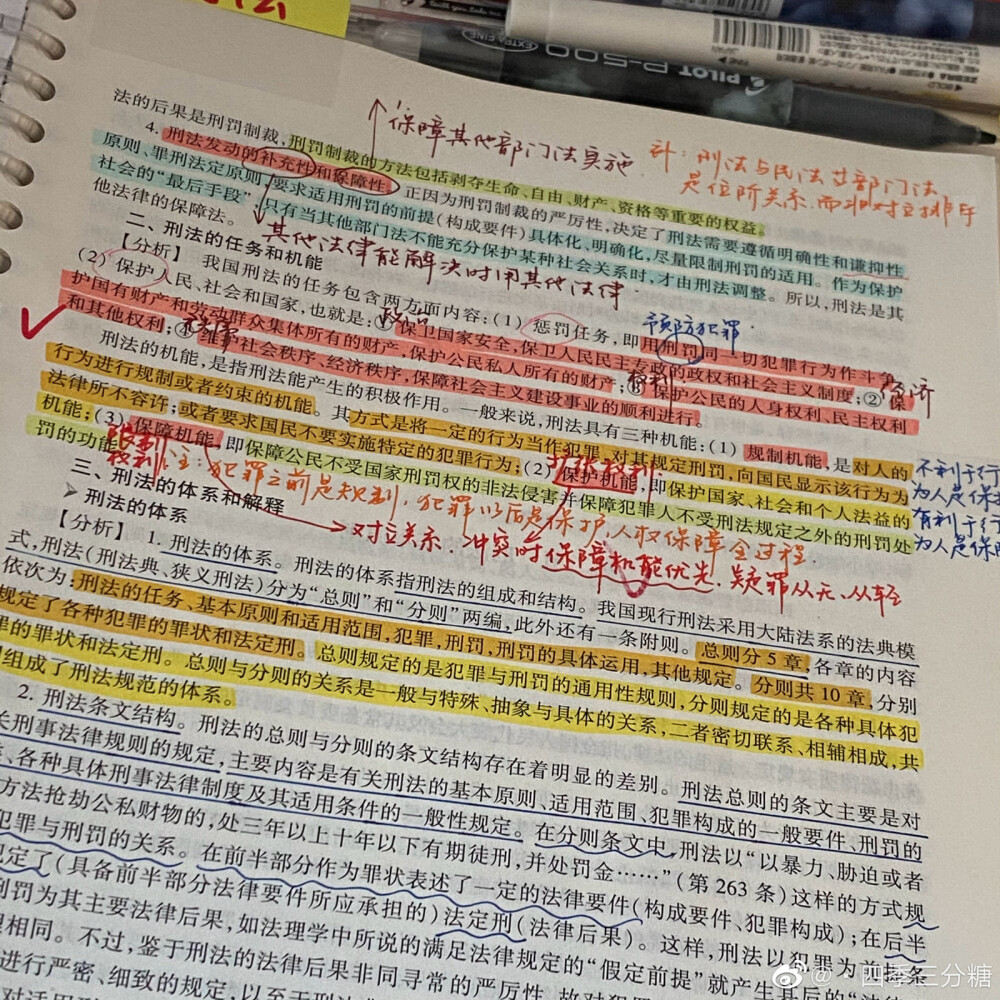 法的后果是刑罚制裁,刑罚制裁的方法包括剥夺生命、自由、财产、资格等重要的权益。
保障其他部门法实施
注:刑法与民法等部门法
是位阶关系,而非对立排斥
4. 刑法发动的补充性和保障性。正因为刑罚制裁的严厉性,决定了刑法需要遵循明确性和谦抑性
原则、罪刑法定原则,要求适用刑罚的前提(构成要件)具体化、明确化,尽量限制刑罚的适用。作为保护
社会的“最后手段”,只有当其他部门法不能充分保护某种社会关系时,才由刑法调整。所以,刑法是其
他法律的保障法。
其他法律能解决时用其他法律
二、刑法的任务和机能
【分析】 我国刑法的任务包含两方面内容:(1) 惩罚任务,即用刑罚同一切犯罪行为作斗争
预防犯罪
(2) 保护人民、社会和国家,也就是:①保卫国家安全,保卫人民民主专政的政权和社会主义制度;②保
经济
护国有财产和劳动群众集体所有的财产,保护公民私人所有的财产;③保护公民的人身权利、民主权利
权利
和其他权利;④维护社会秩序、经济秩序,保障社会主义建设事业的顺利进行。
刑法的机能,是指刑法能产生的积极作用。一般来说,刑法具有三种机能:(1) 规制机能,是对人的
行为进行规制或者约束的机能。其方式是将一定的行为当作犯罪,对其规定刑罚,向国民显示该行为为
法律所不容许;或者要求国民不要实施特定的犯罪行为;(2) 保护机能,即保护国家、社会和个人法益的
机能;(3) 保障机能,即保障公民不受国家刑罚权的非法侵害并保障犯罪人不受刑法规定之外的刑罚处
罚的功能。
不利于行
为人是保护
有利于行
为人是保障
限制
权利
注:犯罪之前是规制,犯罪以后是保护,人权保障全过程
三、刑法的体系和解释
刑法的体系
对立关系.冲突时保障机能优先.疑罪从无、从轻
【分析】 1. 刑法的体系。刑法的体系指刑法的组成和结构。我国现行刑法采用大陆法系的法典模
式,刑法(刑法典、狭义刑法)分为“总则”和“分则”两编,此外还有一条附则。总则分5章,各章的内容
依次为:刑法的任务、基本原则和适用范围,犯罪,刑罚,刑罚的具体运用,其他规定。分则共10章,分别
规定了各种犯罪的罪状和法定刑。总则规定的是犯罪与刑罚的通用性规则,分则规定的是各种具体犯
罪的罪状和法定刑。总则与分则的关系是一般与特殊、抽象与具体的关系,二者密切联系、相辅相成,共
同组成了刑法规范的体系。
2. 刑法条文结构。刑法的总则与分则的条文结构存在着明显的差别。刑法总则的条文主要是对
关刑事法律规则的规定,主要内容是有关刑法的基本原则、适用范围、犯罪构成的一般要件、刑罚的
、各种具体刑事法律制度及其适用条件的一般性规定。在分则条文中,刑法以“以暴力、胁迫或者
方法抢劫公私财物的,处三年以上十年以下有期徒刑,并处罚金……”(第263条)这样的方式规
犯罪与刑罚的关系。在前半部分作为罪状表述了一定的法律要件(构成要件、犯罪构成);在后半
规定了(具备前半部分法律要件所应承担的)法定刑(法律后果)。这样,刑法以犯罪为前提条
刑罚为其主要法律后果,如法理学中所说的满足法律规定的“假定前提”就产生其后的
相同。不过,鉴于刑法的法律后果非同寻常的严厉性,故对犯罪
进行严密、细致的规定,以至于刑法
PILOT P-500
EXTRA FINE
@_四季三分糖